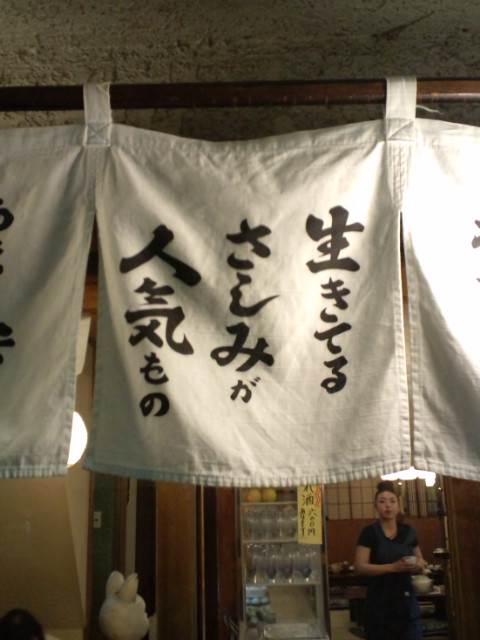 生きてる
さしみが
人気もの
酒
六百円